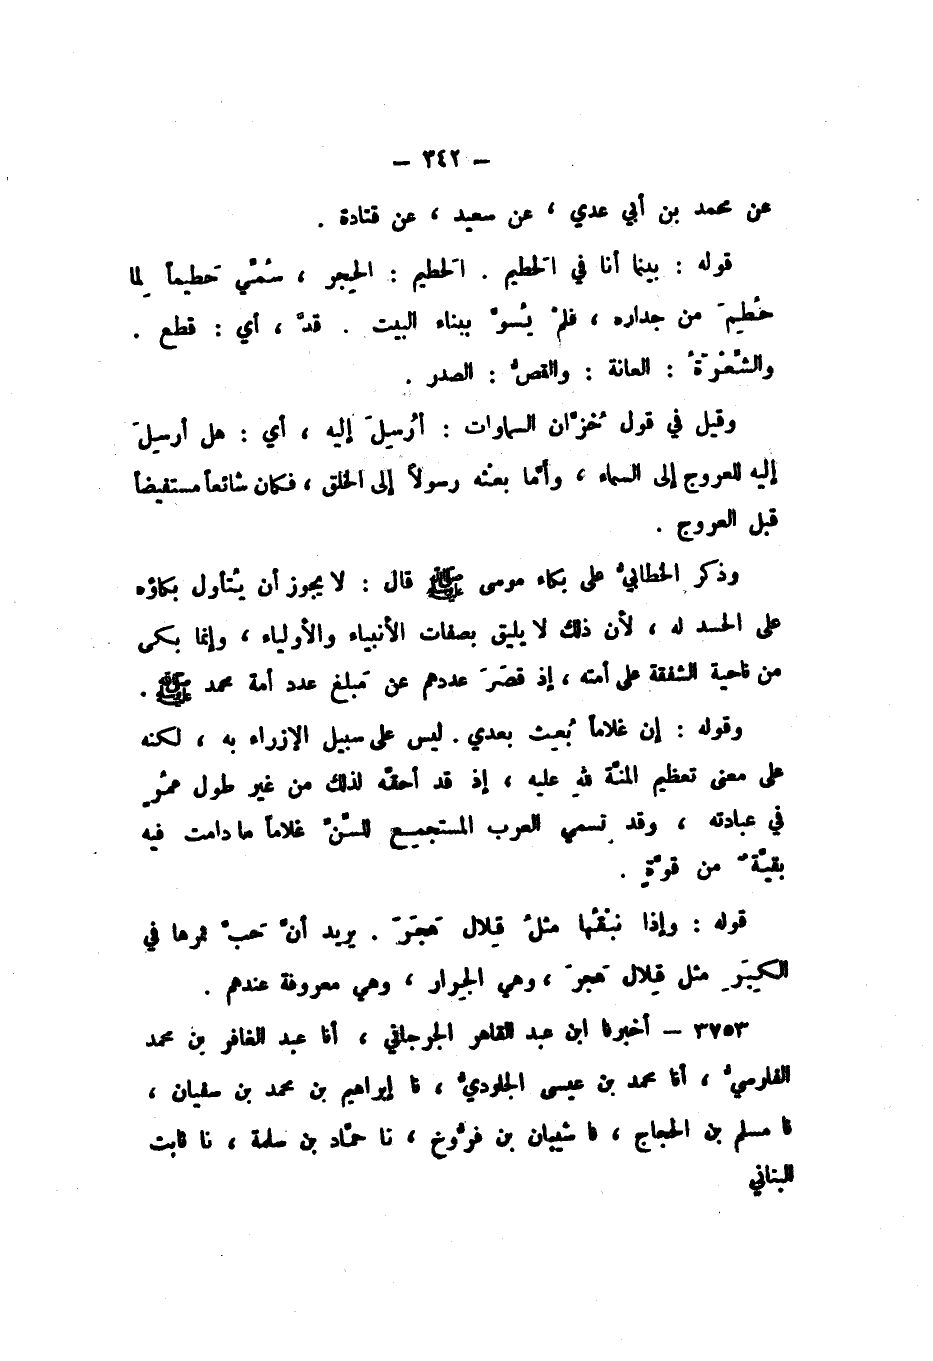 — ٣٤٢ —
عن محمد بن أبي عدي ، عن سعيد ، عن قتادة .
قوله : بينما أنا في الحَطيم . الحَطيم : الحِجر ، سُمِّي حَطيماً لِما
حُطِمَ من جداره ، فلمْ يُسوَّ ببناء البيت . قدَّ ، أي : قطع .
والشِّعْرَةُ : العانة : والقصُّ : الصدر .
وقيل في قول خُزَّان السماوات : أُرْسِلَ إليه ، أي : هل أرسِلَ
إليه للعروج إلى السماء ، وأمَّا بعثه رسولاً إلى الخلق ، فكان شائعاً مستفيضاً
قبل العروج .
وذكر الخطابيُّ على بكاء موسى ﷺ قال : لا يجوز أن يُتأول بكاؤه
على الحسد له ، لأن ذلك لا يليق بصفات الأنبياء والأولياء ، وإنما بكى
من ناحية الشفقة على أمته ، إذ قصَرَ عددهم عن مَبلغ عدد أمة محمد ﷺ .
وقوله : إن غلاماً بُعِث بعدي . ليس على سبيل الإزراء به ، لكنه
على معنى تعظيم المنَّة لله عليه ، إذ قد أحقَّه لذلك من غير طول عمُرٍ
في عبادته ، وقد تسمي العرب المستجمِع للسِّنِّ غلاماً ما دامت فيه
بقيَّةٌ من قوَّةٍ .
قوله : وإذا نبْقُها مثلُ قِلال هَجَرَ . يريد أنَّ حَبَّ ثمرها في
الكِبَرِ مثل قِلال هَجرَ ، وهي الجِرار ، وهي معروفة عندهم .
٣٧٥٣ — أخبرنا ابن عبد القاهر الجرجاني ، أنا عبد الغافر بن محمد
الفارسيُّ ، أنا محمد بن عيسى الجلوديُّ ، نا إبراهيم بن محمد بن سفيان ،
نا مسلم بن الحجاج ، نا شيبان بن فرُّوخ ، نا حمَّاد بن سلمة ، نا ثابت
البناني